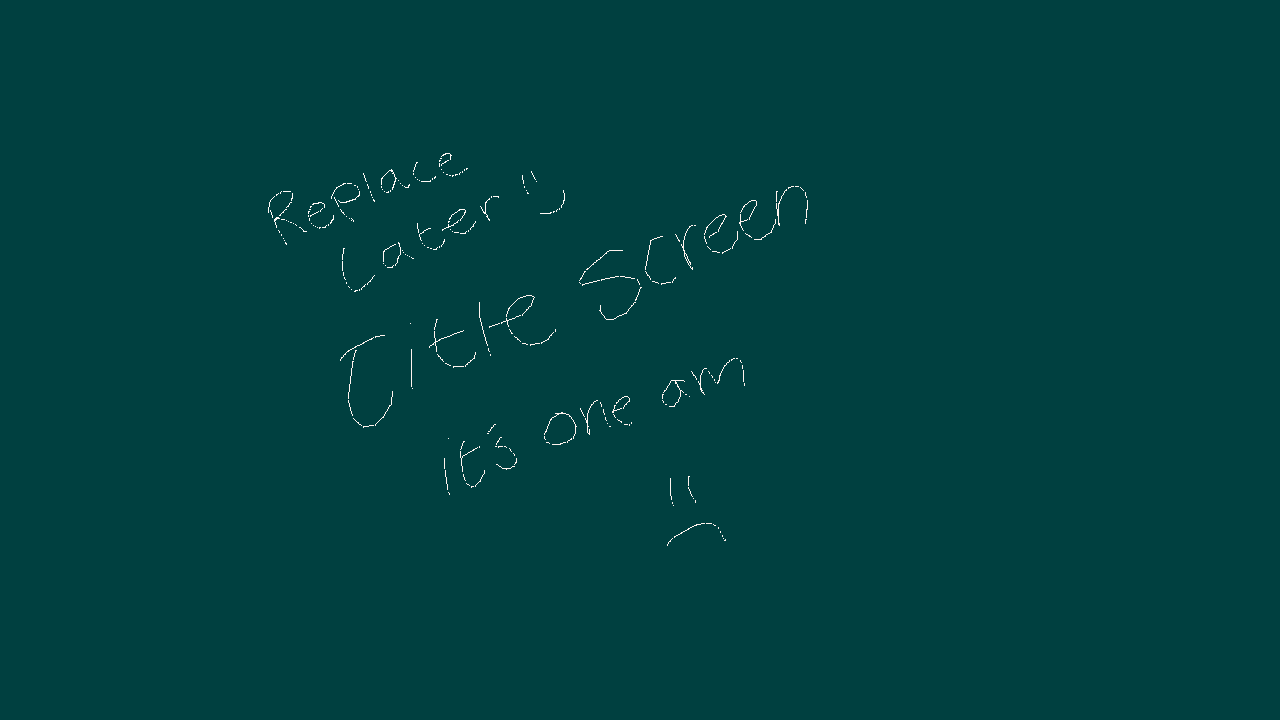 Replace
Later
Title Screen
it's one am